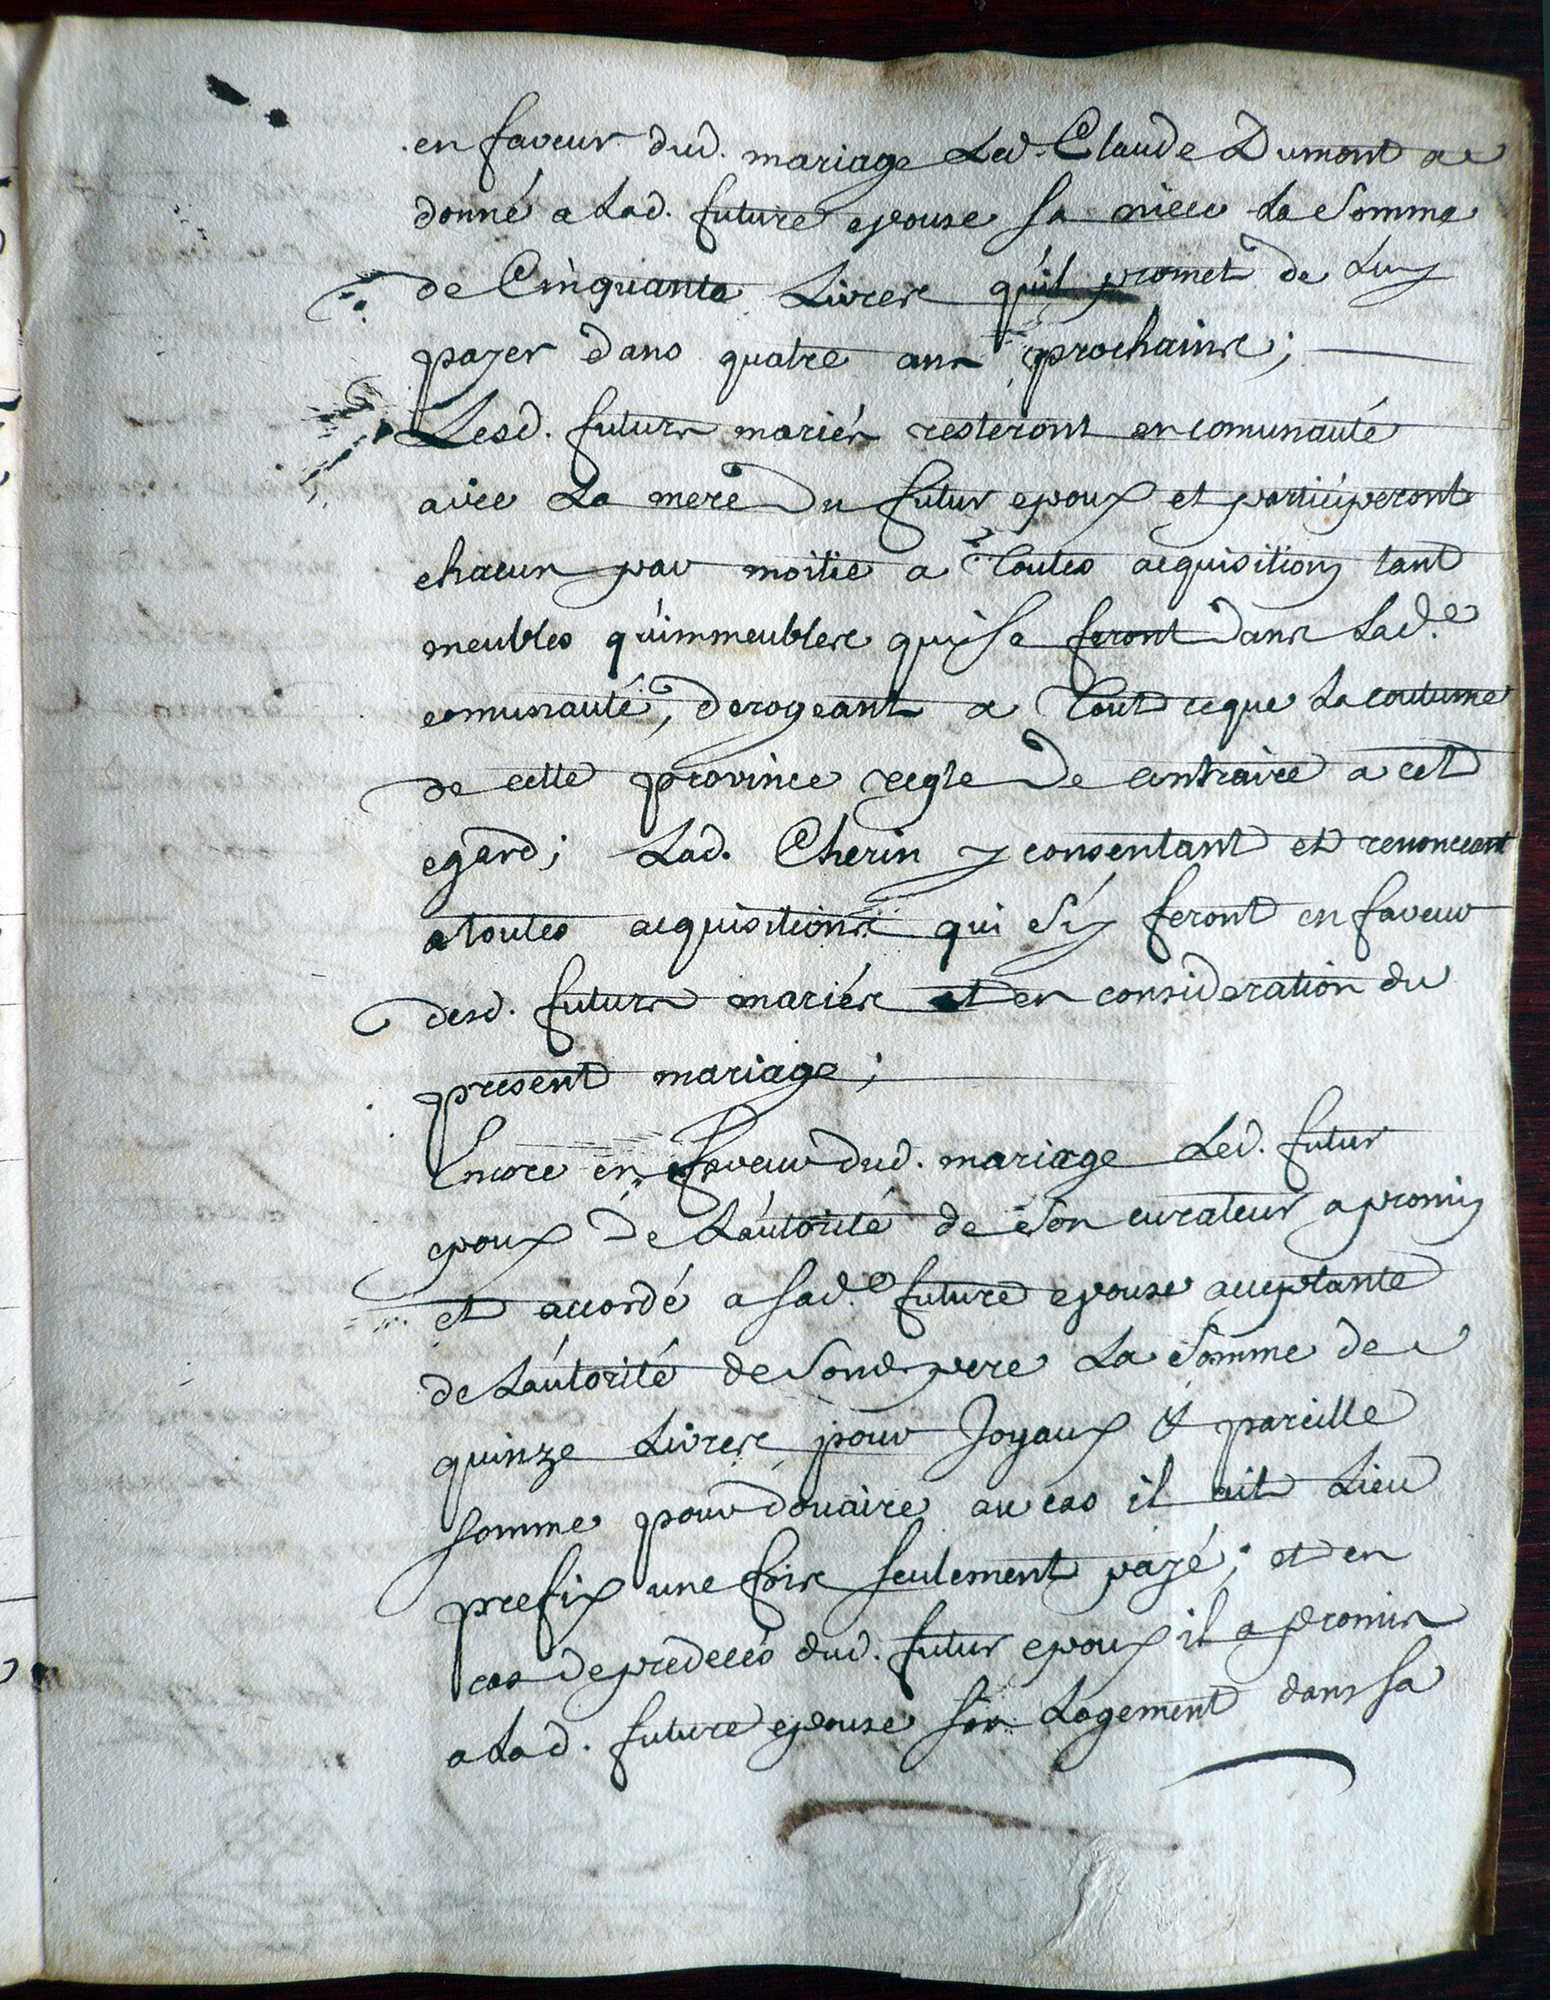 en faveur dud. mariage Led. Claude Dumont a
donné a Lad. future epouse sa niece La somme
de Cinquante Livres qu'il promet de Luy
payer dans quatre ans prochains;
Lesd. futurs mariés resteront en comunauté
avec La mere du futur epoux et participeront
chacun par moitie a toutes acquisitions tant
meubles qu'immeubles qui se feront dans Lad.e
comunauté, derogeant a tout ce que La coutume
de cette province regle de contraire a cet
egard; Lad. Cherin y consentant et renoncent
a toutes acquisitions qui s'y feront en faveur
desd. futurs mariés et en consideration du
present mariage;
Encore en faveur dud. mariage Led. futur
epoux de L'autorité de son curateur a promis
et accordé a sad.e future epouse acceptante
de L'autorité de sond. pere La somme de
quinze Livres pour Joyaux & pareille
somme pour douaire au cas il ait Lieu
prefix une fois seulement payé; et en
cas de predecés dud. futur epoux il a promis
a Lad. future epouse son Logement dans sa